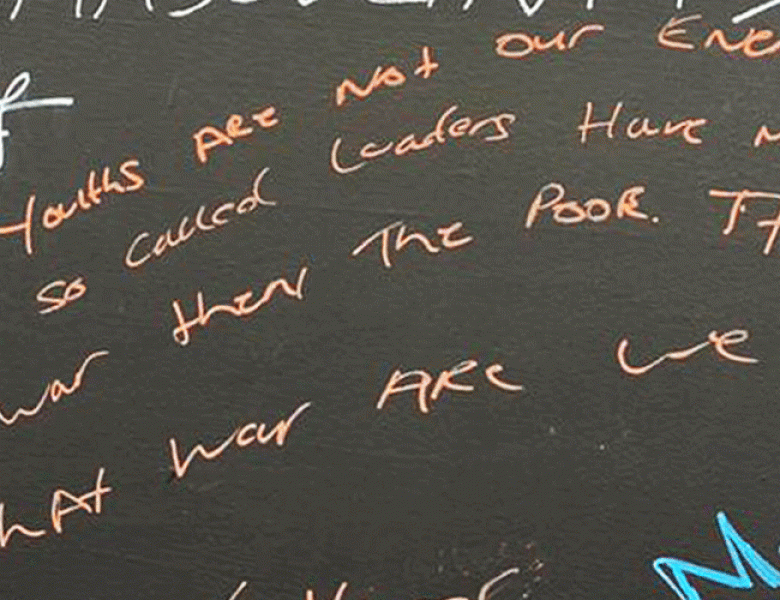 Youths Are Not our Ene
so called Leaders Have
war then The POOR.
hAt war ARe we